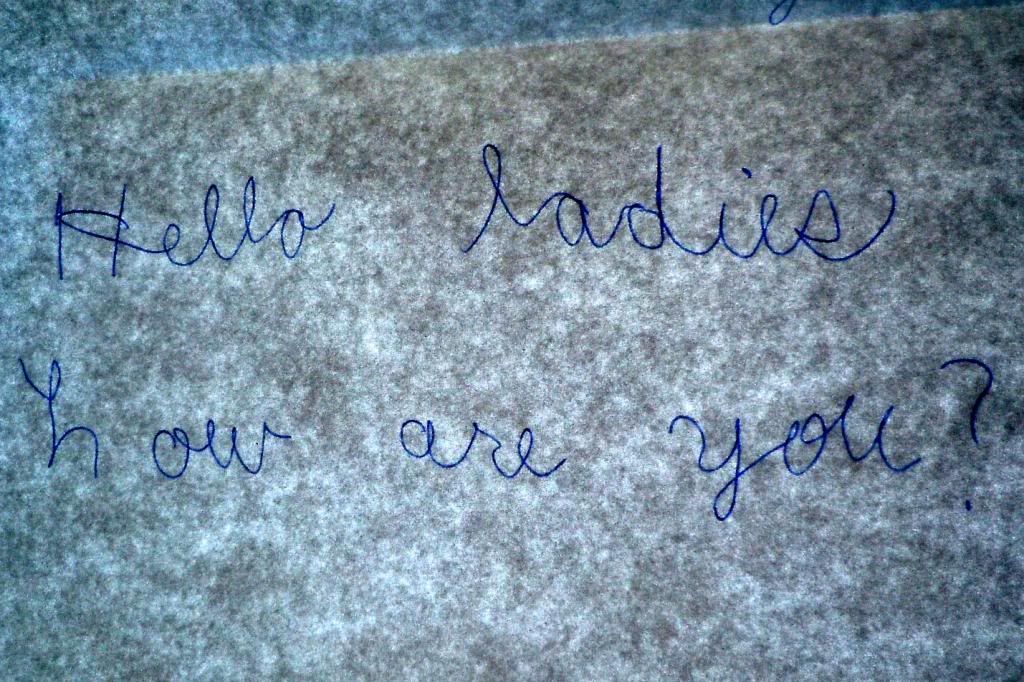 Hello ladies
how are you?